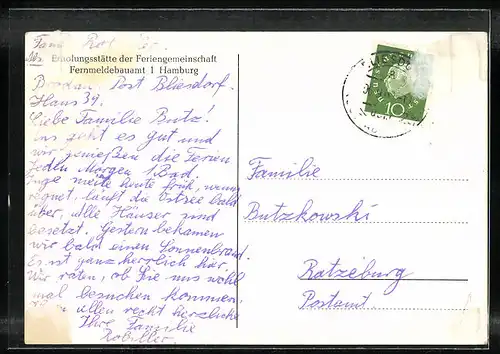 Fam.
Abs. Erholungsstätte der Feriengemeinschaft
Fernmeldebauamt 1 Hamburg
Brodau, Post Bliesdorf.
Haus 34.
Liebe Familie Butz!
Uns geht es gut und
wir genießen die Ferien
Jeden Morgen 1 Bad.
Inge meinte heute früh, wenn
regnet, läuft die Ostsee bald
über, alle Häuser sind
besetzt. Gestern bekamen
wir bald einen Sonnenbrand.
Es ist ganz herrlich hier
Wir raten, ob Sie uns wohl
mal besuchen kommen.
allen recht herzliche
Ihre Familie
10
Familie
Butzkowski
Ratzeburg
Postamt.